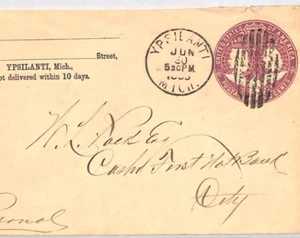 Street,
YPSILANTI, Mich.,
ot delivered within 10 days.
YPSILANTI
JUN
30
530PM
MICH.
UNITED STATES OF AMERICA
W. L. Pack Esq
Cash'r First Nat Bank
City
rsonal